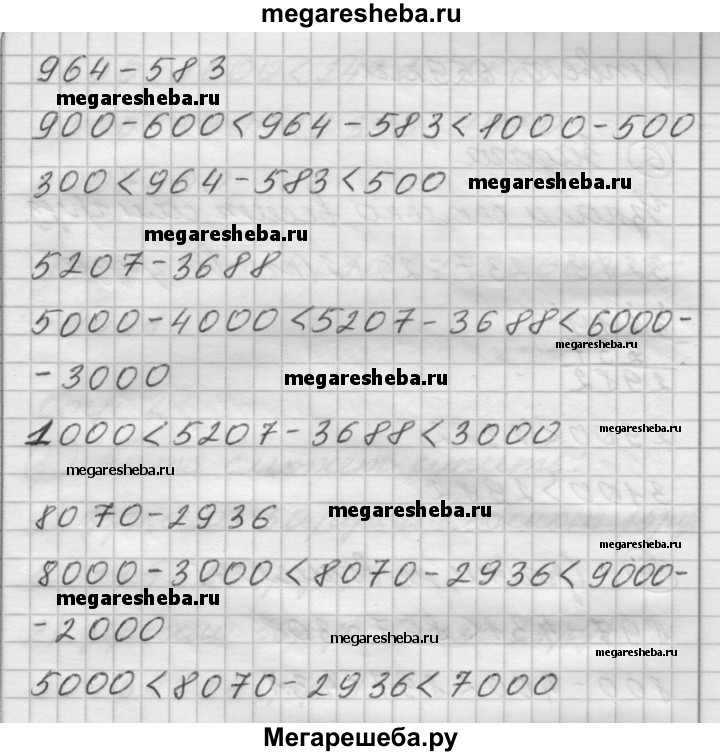 megaresheba.ru
964-583
megaresheba.ru
900-600<964-583<1000-500
300<964-583<500 megaresheba.ru
megaresheba.ru
5207-3688
5000-4000<5207-3688<6000-
megaresheba.ru
-3000 megaresheba.ru
1000<5207-3688<3000 megaresheba.ru
megaresheba.ru
8070-2936 megaresheba.ru
megaresheba.ru
8000-3000<8070-2936<9000-
megaresheba.ru
-2000 megaresheba.ru
megaresheba.ru
5000<8070-2936<7000
Мегарешеба.ру